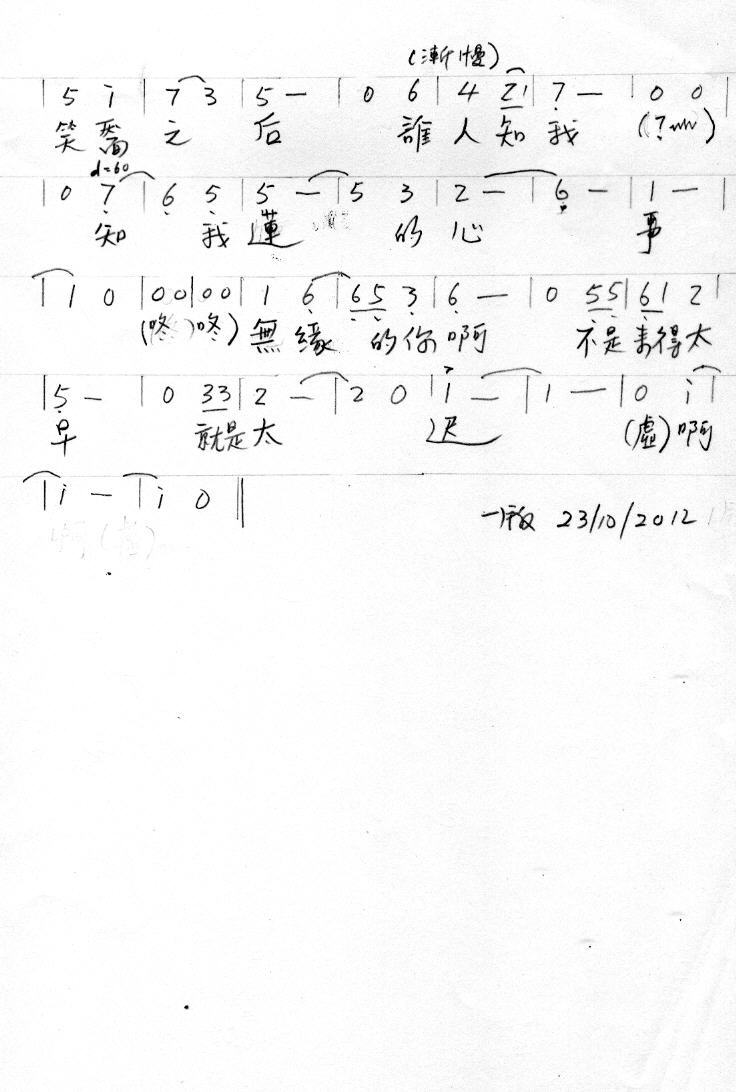 (漸慢)
| 5 i | 7 3 | 5 — | 0 6 | 4 21 | 7 — | 0 0 |
笑靨 之 后 誰 人 知 我 (7〰)
♩=60
| 0 7 | 6 5 | 5 — | 5 3 | 2 — | 6 — | 1 — |
知 我 蓮 的 心 事
| 1 0 | 00 | 00 | 1 6 | 65 3 | 6 — | 0 55 | 61 2 |
(咚)(咚) 無緣 的你啊 不是來得太
| 5 — | 0 33 | 2 — | 2 0 | i — | 1 — | 0 i |
早 就是太 迟 (虛)啊
| i — | i 0 ‖
23/10/2012